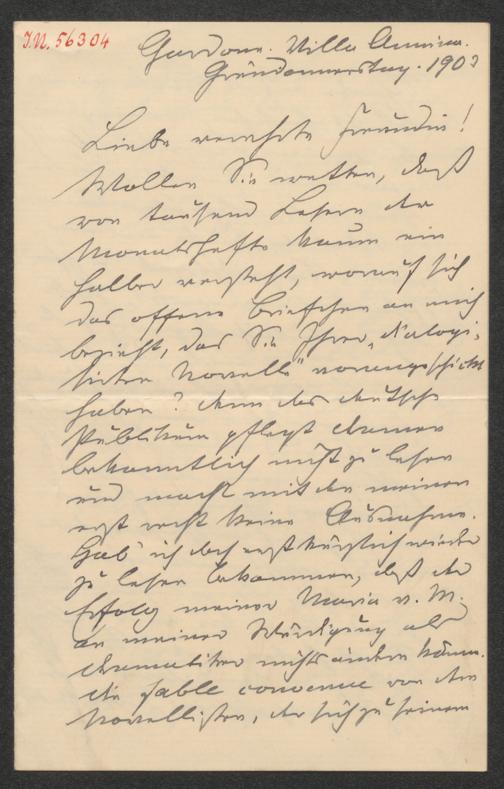 I.N. 56304
Gardone. Villa Annina.
Gründonnerstag. 1903
Liebe verehrte Freundin!
Wollen Sie wetten, daß
von tausend Lesern der
Monatshefte kaum ein
halber versteht, worauf sich
das offene Briefchen an mich
bezieht, das Sie Ihrer „dialogi-
sirten Novelle" vorausgeschickt
haben? Denn das deutsche
Publikum pflegt Dramen
bekanntlich nicht zu lesen
und macht mit den meinen
erst recht keine Ausnahme.
Hab' ich doch erst kürzlich wieder
zu lesen bekommen, daß der
Erfolg meiner Maria v. M.
an meiner Würdigung als
Dramatiker nichts ändern könne.
Die fable convenue von dem
Novellisten, der sich zu seinem